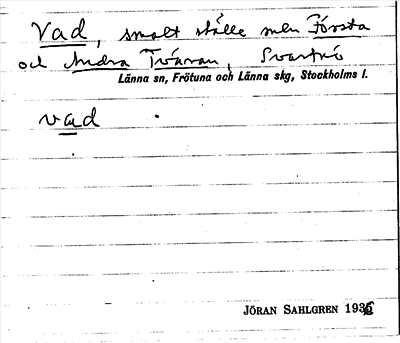 Vad, smalt ställe mln Första
och Andra Tvären, Svartnö
Länna sn, Frötuna och Länna skg, Stockholms l.
vad
JÖRAN SAHLGREN 1936